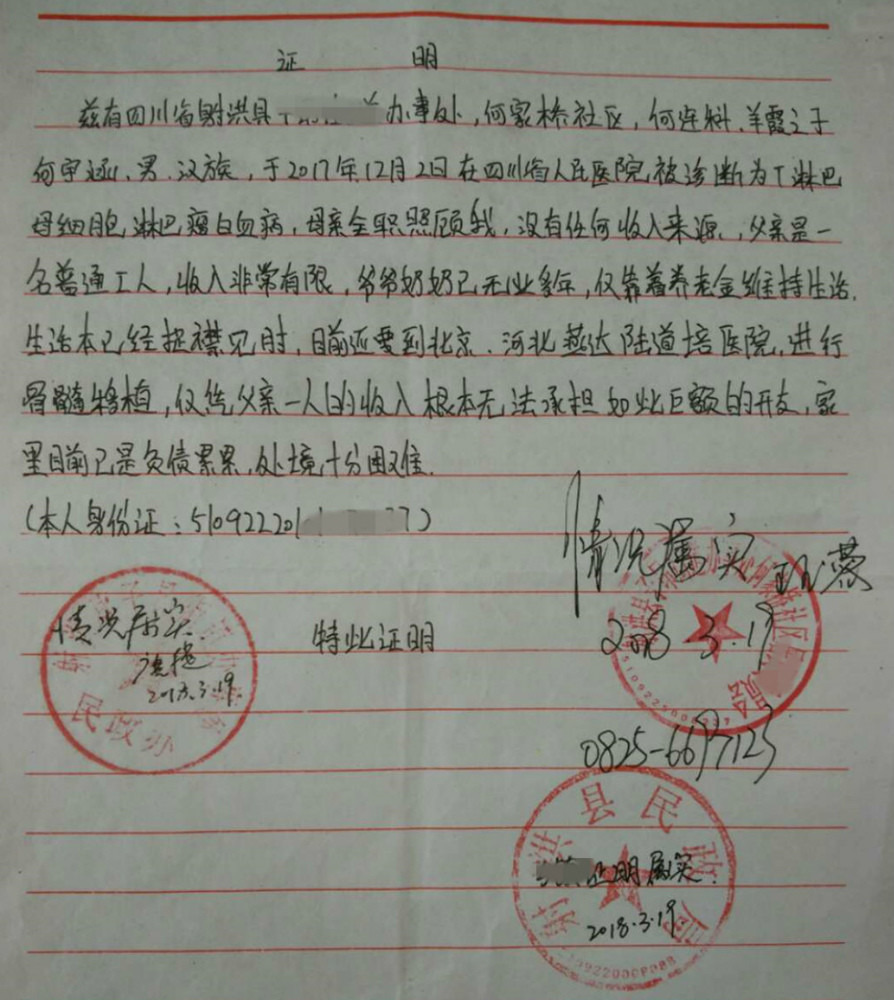 证 明
兹有四川省射洪县 办事处，何家桥社区，何连料、羊霞之子
何宇涵、男、汉族，于2017年12月2日在四川省人民医院被诊断为T淋巴
母细胞淋巴瘤白血病，母亲全职照顾我，没有任何收入来源，父亲是一
名普通工人，收入非常有限，爷爷奶奶已无业多年，仅靠着养老金维持生活.
生活本已经捉襟见肘，目前还要到北京、河北燕达陆道培医院，进行
骨髓移植，仅凭父亲一人的收入根本无法承担如此巨额的开支，家
里目前已是负债累累，处境十分困难.
(本人身份证：510922201 77)
情况属实
2018.3.19
情况属实.
2018.3.19.
民政办
特此证明
0825-6697123
射洪县民政局
证明属实.
2018.3.19.